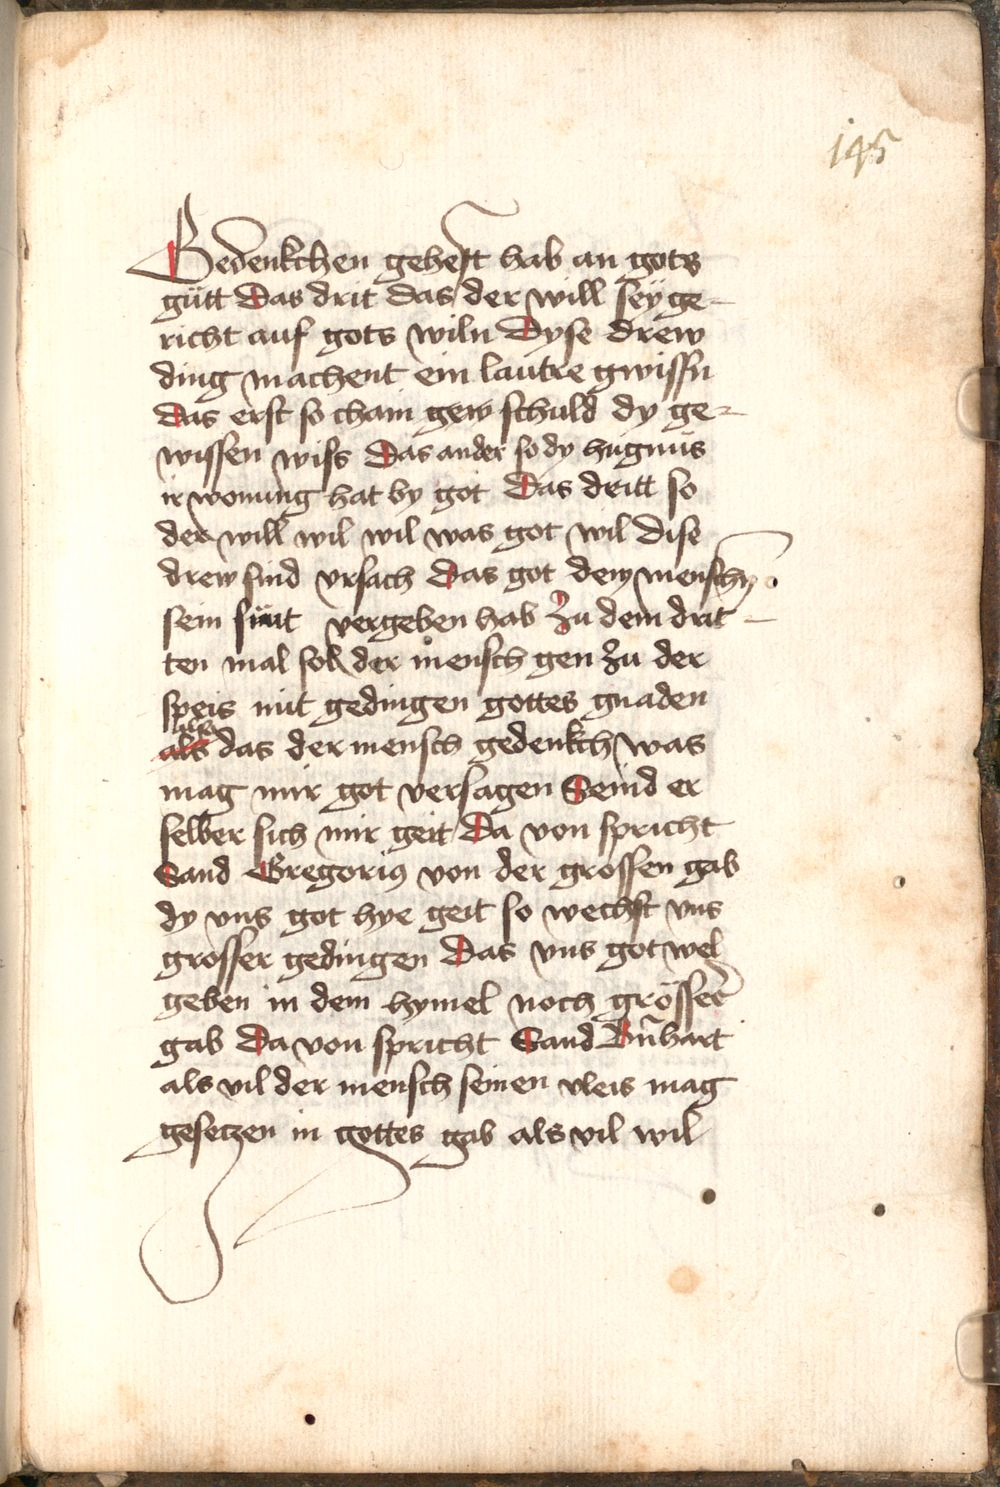 145
Gedenkchen geheft hab an gots
gütt Das drit das der will seÿ ge-
richt auf gots wiln Dyse drew
ding machent ein lautre gwissn
Das erst so chain new schuld dy ge-
wissen wiss Das ander so dy hugnus
ir wonung hat by got Das dritt so
der will wil wil was got wil Dise
drew sind vrsach Das got dem menschn
sein sünt vergeben hab Zu dem drit-
ten mal sol der mensch gen zu der
speis mit gedingen gottes gnaden
also
als das der mensch gedenkch was
mag mir got versagen Seind er
selber sich mir geit Da von spricht
Sand Gregorius von der grossen gab
dy vns got hye geit so wechst vns
grosser gedingen Das vns got wel
geben in dem hymel noch grösser
gab Da von spricht Sand Bn̄hart
als vil der mensch seinen vleis mag
gesetzen in gottes gab als vil wil